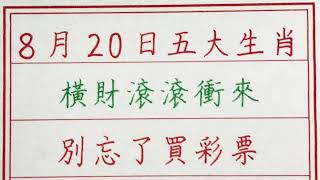 8月20日五大生肖
橫財滾滾衝來
別忘了買彩票